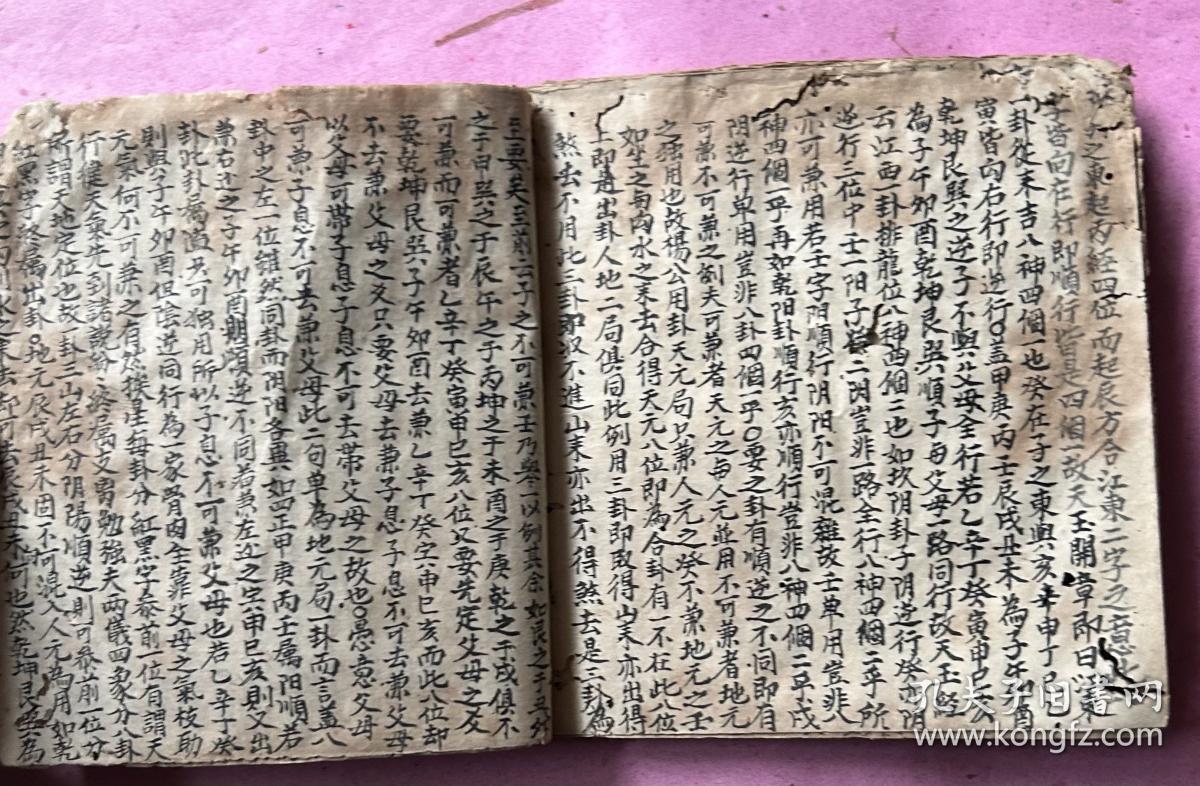 之東起丙經四位而起辰方合江東二字之意
皆向左行即順行皆是四個故天玉開章即曰江東
一卦從來吉八神四個一也癸在子之東與亥辛申丁巳
寅皆向右行即逆行〇盖甲庚丙壬辰戌丑未為子午卯酉
乾坤艮巽之逆子不與父母仝行若乙辛丁癸寅申巳亥
為子午卯酉乾坤艮巽順子每父母一路同行故天玉經
云江西一卦排龍位八神四個二也如坎阴卦子阴逆行癸亦阴
逆行三位中壬一阳子癸二阴豈非一路仝行八神四個二乎所
亦可兼用若壬字阴順行阴阳不可混雜故壬单用豈非八
神四個一乎再如乾阳卦順行亥亦順行豈非八神四個二乎戌
阴逆行单用豈非八卦四個一乎〇要之卦有順逆之不同即有
可兼不可兼之例夫可兼者天元之与人元並用不可兼者地元
之独用也故楊公用卦天元局只兼人元之癸不兼地元之壬
如生之与向水之来去合得天元八位即為合卦有一不在此八位
上即是出卦人地二局俱同此例用三卦即取得山来亦出得
煞去不用此三卦即收不進山来亦出不得煞去是三卦為
至要矣至前云子之不可兼壬乃举一以例其余如艮之于丑卯
之于甲巽之于辰午之于丙坤之于未酉之于庚乾之于戌俱不
可兼而可兼者乙辛丁癸寅申巳亥八位又要先定父母之爻
要乾坤艮巽子午卯酉去兼乙辛丁癸寅申巳亥而此八位却
不去兼父母之爻只要父母去兼子息子息不可去兼父母
以父母可帶子息子息不可去帶父母之故也〇愚意父母
可兼子息不可去兼父母此二句单為地元局一卦而言盖八
卦中之左一位雖然同卦而阴阳各異如四正甲庚丙壬属阳順若
兼右边之子午卯酉期順逆不同若兼左边之寅申巳亥則又出
卦此卦属激只可独用所以子息不可兼父母也若乙辛丁癸
則與子午卯酉但陰逆同行為一家骨肉全靠父母之氣枝助
元氣何不可兼之有然採注每卦分紅黑字泰前一位有謂天
行從天氣先到諸說紛紛終属支离勉強夫两儀四象分八卦
所謂天地定位也故一卦三山左右分阴陽順逆則可叅前一位分
紅黑字終属出卦〇地元辰戌丑未固不可混入人元為用如乾